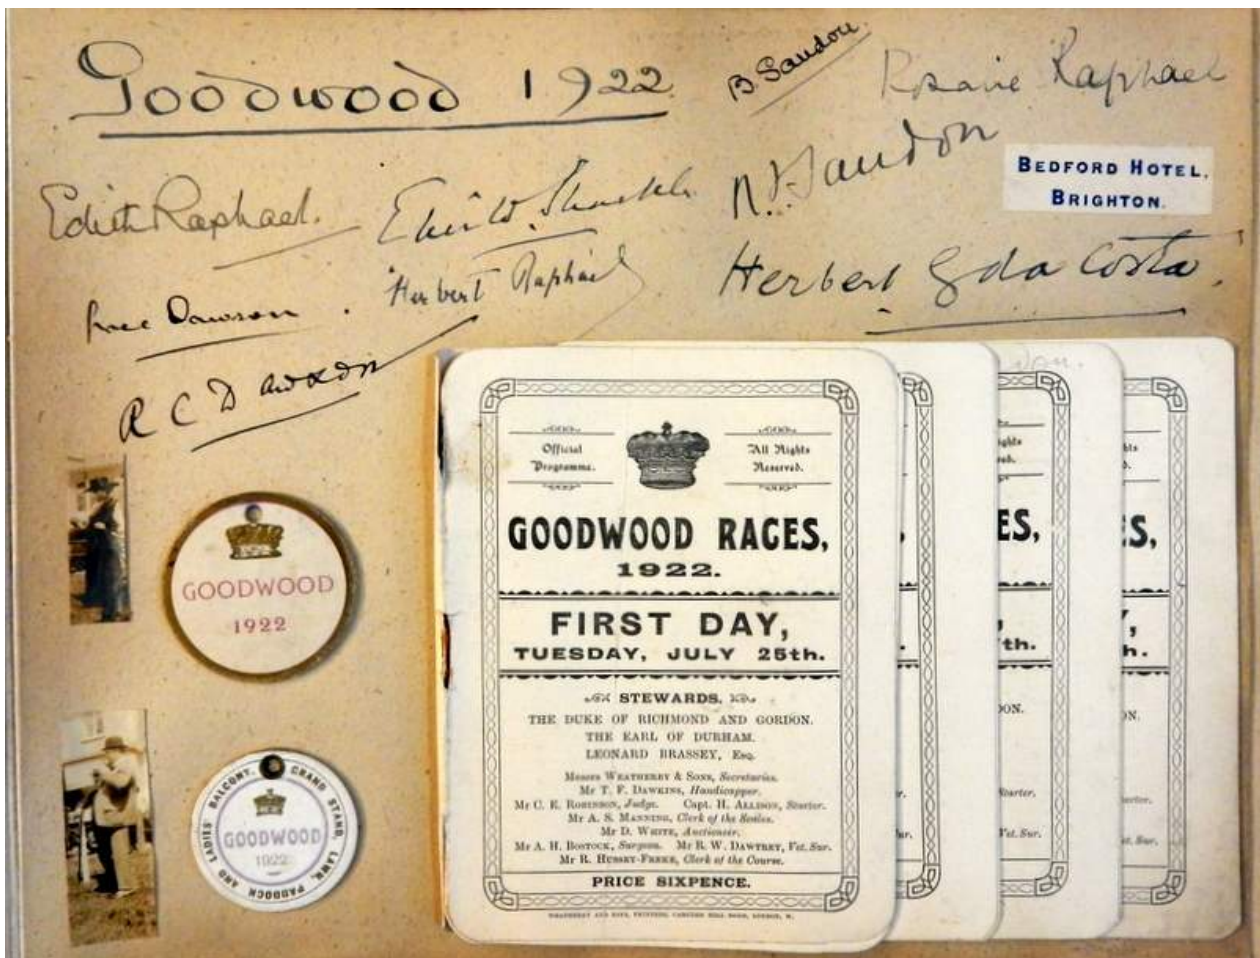 Goodwood 1922
B. Sandon.
Rosalie Raphael
Edith Raphael.
N. J. Sandon
BEDFORD HOTEL,
BRIGHTON.
Grace Dawson.
Herbert Raphael
Herbert G da Costa.
R C Dawson
GOODWOOD
1922
LADIES' BALCONY, GRAND STAND, LAWN, PADDOCK AND
GOODWOOD
1922
Official
Programme.
All Rights
Reserved.
GOODWOOD RACES,
1922.
FIRST DAY,
TUESDAY, JULY 25th.
STEWARDS.
THE DUKE OF RICHMOND AND GORDON.
THE EARL OF DURHAM.
LEONARD BRASSEY, Esq.
Messrs WEATHERBY & SONS, Secretaries.
Mr T. F. DAWKINS, Handicapper.
Mr C. E. ROBINSON, Judge. Capt. H. ALLISON, Starter.
Mr A. S. MANNING, Clerk of the Scales.
Mr D. WHITE, Auctioneer.
Mr A. H. BOSTOCK, Surgeon. Mr R. W. DAWTREY, Vet. Sur.
Mr R. HUSSEY-FREKE, Clerk of the Course.
PRICE SIXPENCE.
WEATHERBY AND SONS, PRINTERS, LONDON, W.
ES,
th.
DON.
Starter.
Vet. Sur.
S,
h.
ON.